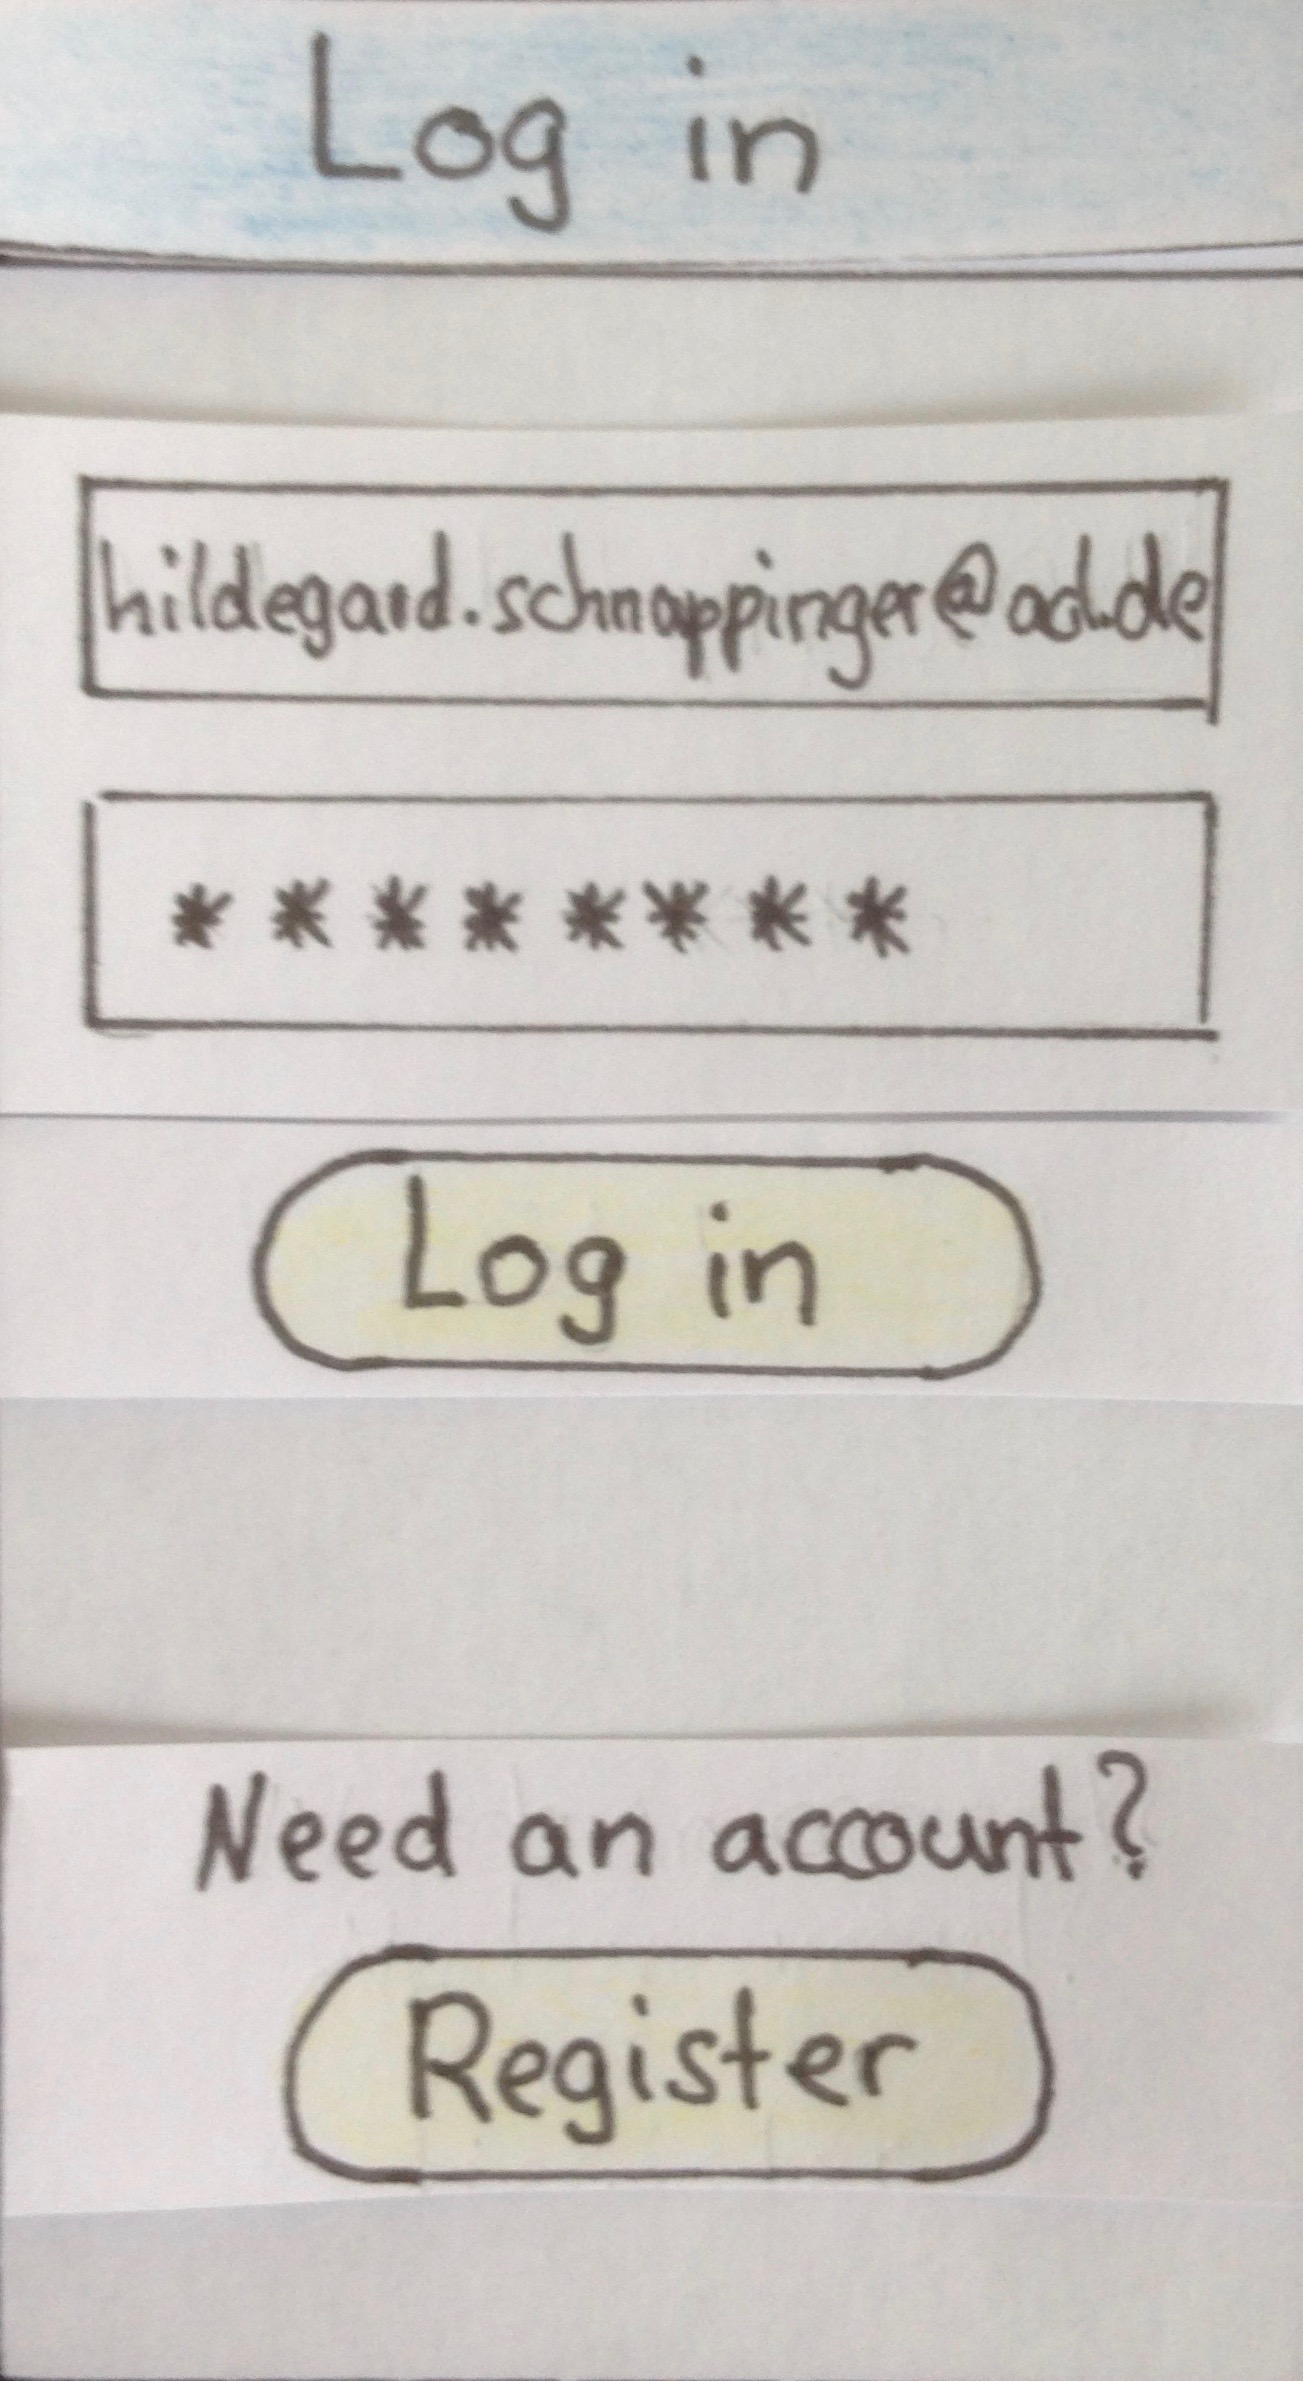 Log in
hildegard.schnappinger@aol.de
********
Log in
Need an account?
Register